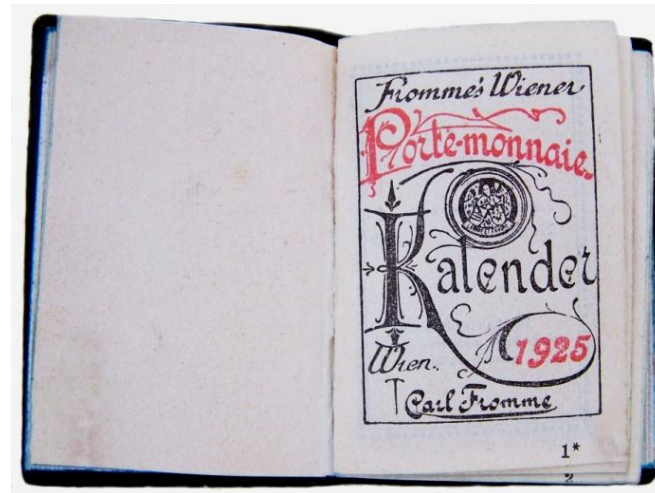 Fromme's Wiener
Porte-monnaie-
Kalender
1925
Wien.
Carl Fromme
1*
2